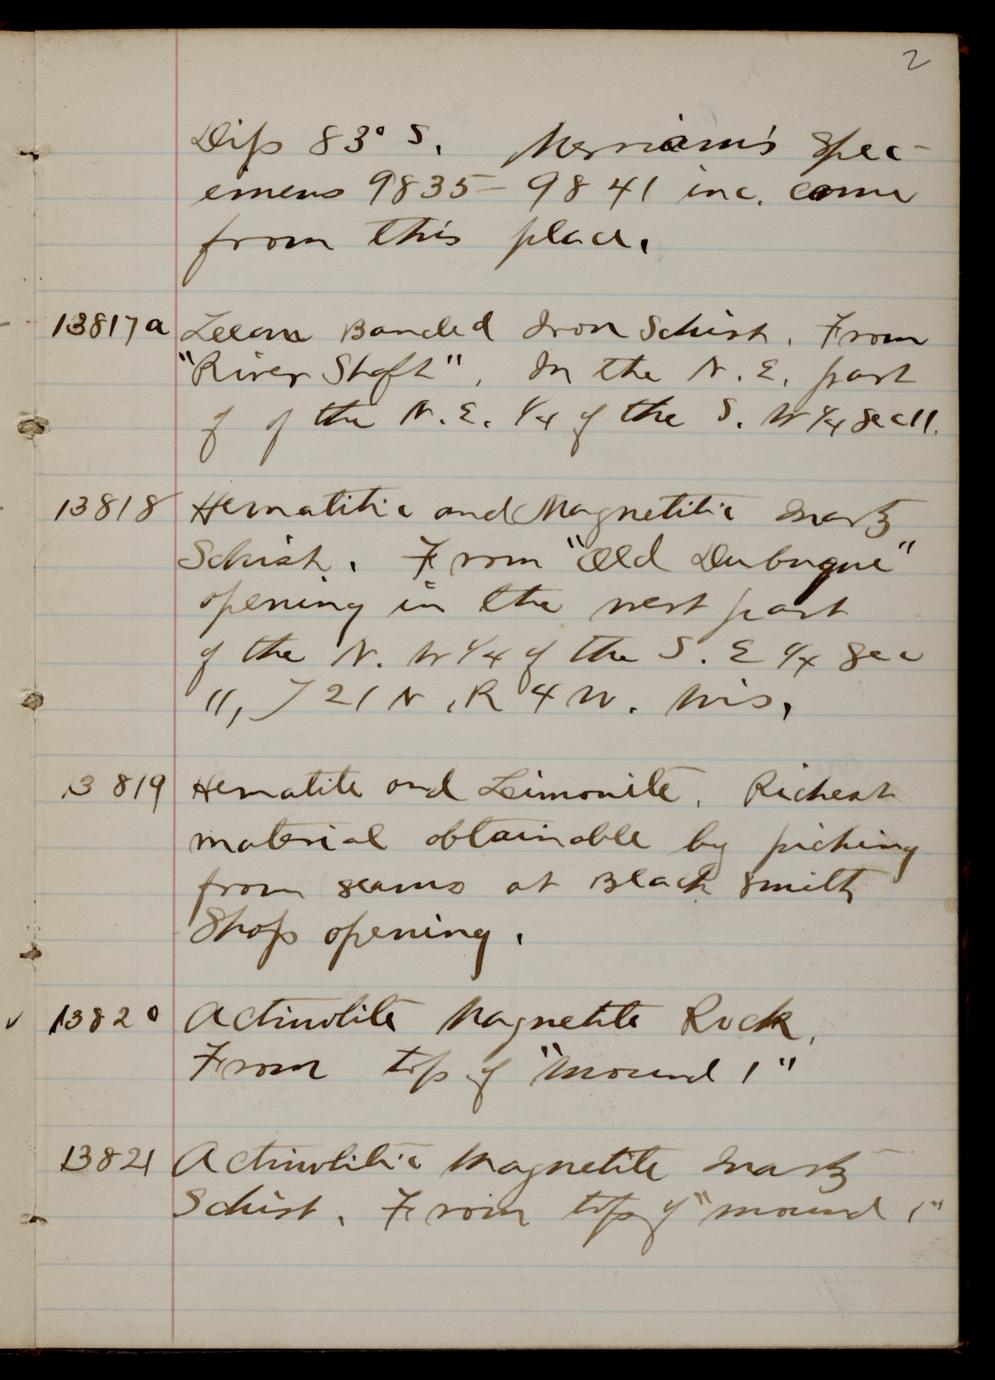 2
Dip 83° S. Merriam's Spec-
imens 9835-9841 inc. come
from this place.
13817a Lean Banded Iron Schist. From
"River Shaft". In the N.E. part
of of the N.E. 1/4 of the S. W 1/4 Sec 11.
13818 Hematitic and Magnetitic Quartz
Schist. From "Old Dubuque"
opening in the west part
of the N. W 1/4 of the S. E 1/4 Sec
11, T 21 N, R 4 W. Wis.
13819 Hematite and Limonite. Richest
material obtainable by picking
from seams at Black Smith
Shop opening.
✓ 13820 Actinolite Magnetite Rock.
From top of "Mound 1"
13821 Actinolitic Magnetite Quartz
Schist. From top of "mound 1"